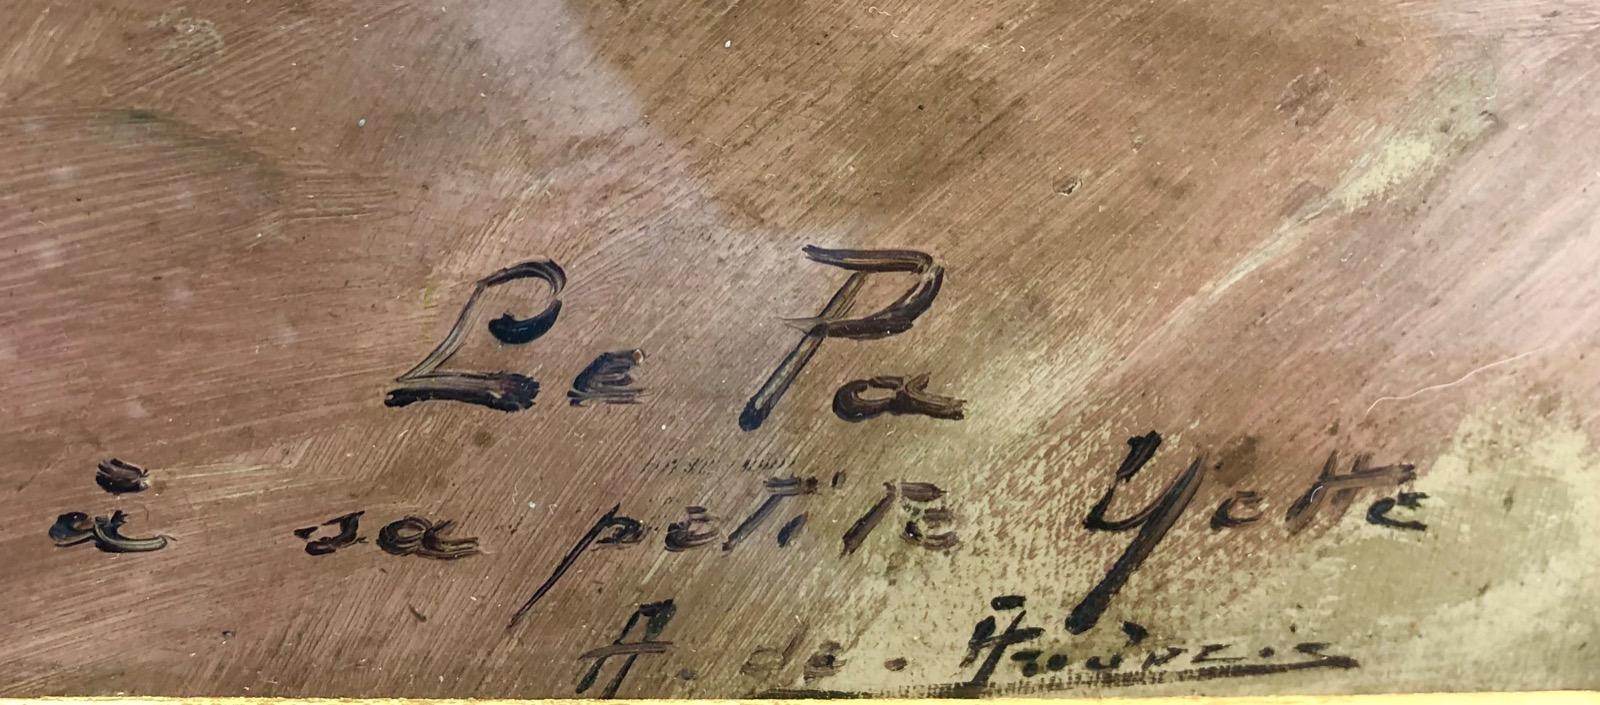 Le Pa
à sa petite Yette
A. de.